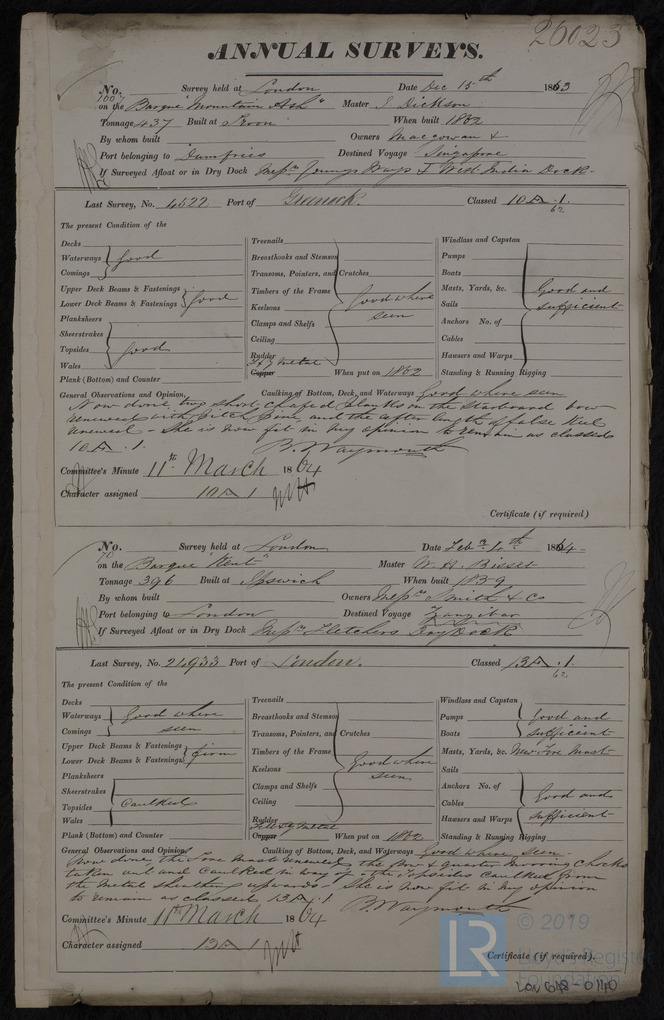 26023
ANNUAL SURVEYS.
No. 1007 Survey held at London Date Dec 15th 1863
on the Barque "Mountain Ash" Master J Dickson
Tonnage 437 Built at Troon When built 1862
By whom built Owners Maccowan &
Port belonging to Dumfries Destined Voyage Singapore
If Surveyed Afloat or in Dry Dock Messrs West India Dock.
Last Survey, No. 4522 Port of Greenock. Classed 10 A . 1.
62
The present Condition of the
Decks
Waterways good
Comings
Upper Deck Beams & Fastenings
Lower Deck Beams & Fastenings good
Planksheers
Sheerstrakes
Topsides good
Wales
Plank (Bottom) and Counter
Treenails
Breasthooks and Stemson
Transoms, Pointers, and Crutches
Timbers of the Frame
Keelsons good where
Clamps and Shelfs seen
Ceiling
Rudder
Copper Metal When put on 1862
Windlass and Capstan
Pumps
Boats
Masts, Yards, &c. Good and
Sails sufficient
Anchors No. of
Cables
Hawsers and Warps
Standing & Running Rigging
General Observations and Opinion, Caulking of Bottom, Deck, and Waterways Good where seen
Now done, two short chafed planks on the starboard bow
renewed with Pitch Pine, and the after length of false Keel
renewed - She is now fit in my opinion to remain as classed
10 A . 1. B. Waymouth
Committee's Minute 11th March 1864
Character assigned 10 A 1
Certificate (if required)
No. 70 Survey held at London Date Feby 4th 1864
on the Barque "Kent" Master W. H. Bisset
Tonnage 396 Built at Ipswich When built 1859
By whom built Owners Messrs Smith & Co
Port belonging to London Destined Voyage Zanzibar
If Surveyed Afloat or in Dry Dock Messrs Fletchers Dry Dock
Last Survey, No. 24933 Port of London. Classed 13 A . 1.
62
The present Condition of the
Decks
Waterways Good where
Comings seen
Upper Deck Beams & Fastenings
Lower Deck Beams & Fastenings firm
Planksheers
Sheerstrakes
Topsides Caulked
Wales
Plank (Bottom) and Counter
Treenails
Breasthooks and Stemson
Transoms, Pointers, and Crutches
Timbers of the Frame
Keelsons Good where
Clamps and Shelfs seen
Ceiling
Rudder
Copper Metal When put on 1862
Windlass and Capstan
Pumps Good and
Boats sufficient
Masts, Yards, &c. New Fore Mast
Sails
Anchors No. of
Cables Good and
Hawsers and Warps sufficient
Standing & Running Rigging
General Observations and Opinion, Caulking of Bottom, Deck, and Waterways Good where seen
Now done, the Fore Mast renewed, the Bow & Quarter Mooring Chocks
taken out and Caulked in way of - the Topsides Caulked from
the Metal sheathing upwards. She is now fit in my opinion
to remain as classed 13 A . 1 B. Waymouth
Committee's Minute 11th March 1864
Character assigned 13 A 1
Certificate (if required).
© 2019
LR
Lloyd's Register
Foundation
LON 648-0140